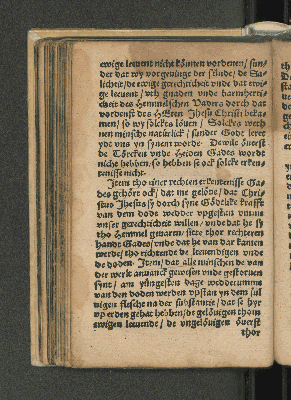 ewige levent nicht können vordenen / sun-
der dat wy vorgevinge der sünde / de Sa-
licheit / de ewige gerechticheit unde dat ewi-
ge levent / uth gnaden unde barmherti-
cheit des Hemmelschen Vaders dorch dat
vordenst des HEREN Jhesu Christi beka-
men / so wy solckes löven / Solckes weth
nen minsche natürlick / sunder Godt leret
yde uns yn synem worde. Dewile överst
de Törcken unde Heiden Gades wordt
nicht hebben / so hebben se ock solcke erken-
tenisse nicht.
Jtem tho einer rechten erkentenisse Ga-
des gehört ock / dat me gelöve / dat Chri-
stus Jhesus sy dorch syne Gödtlike krafft
van dem dode wedder upgestan umme
unser gerechticheit willen / unde dat he sy
tho Hemmel gevaren / sitte thor rechtern
handt Gades / unde dat he van dar kamen
werde / tho richtende de levendigen unde
de doden. Jtem / dat alle minschen de van
der werlt anvanck gewesen unde gestorven
synt / am yüngesten dage wedderumme
van den doden werden upstan yn dem sül-
vigen flesche na der substantie / dat se hyr
up erden gehat hebben / de gelövigen thom
ewigen levende / de ungelövigen överst
thor